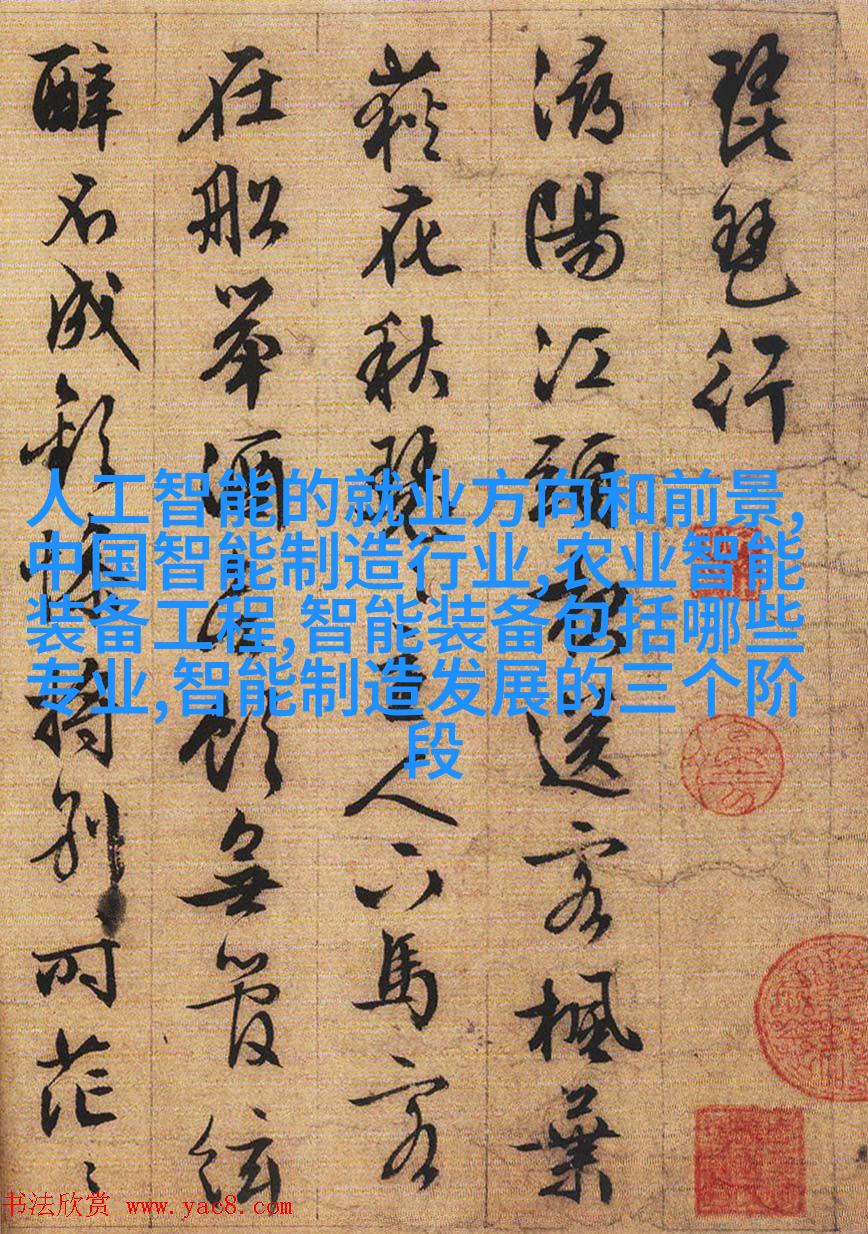 琵琶行
潯陽江頭夜送客楓葉
荻花秋瑟〻主人下馬客
在船舉酒欲飲無管絃
醉不成歡慘將別時茫〻
人工智能的就业方向和前景,
中国智能制造行业,农业智能
装备工程,智能装备包括哪些
专业,智能制造发展的三个阶
段
书法欣赏 www.yac8.com